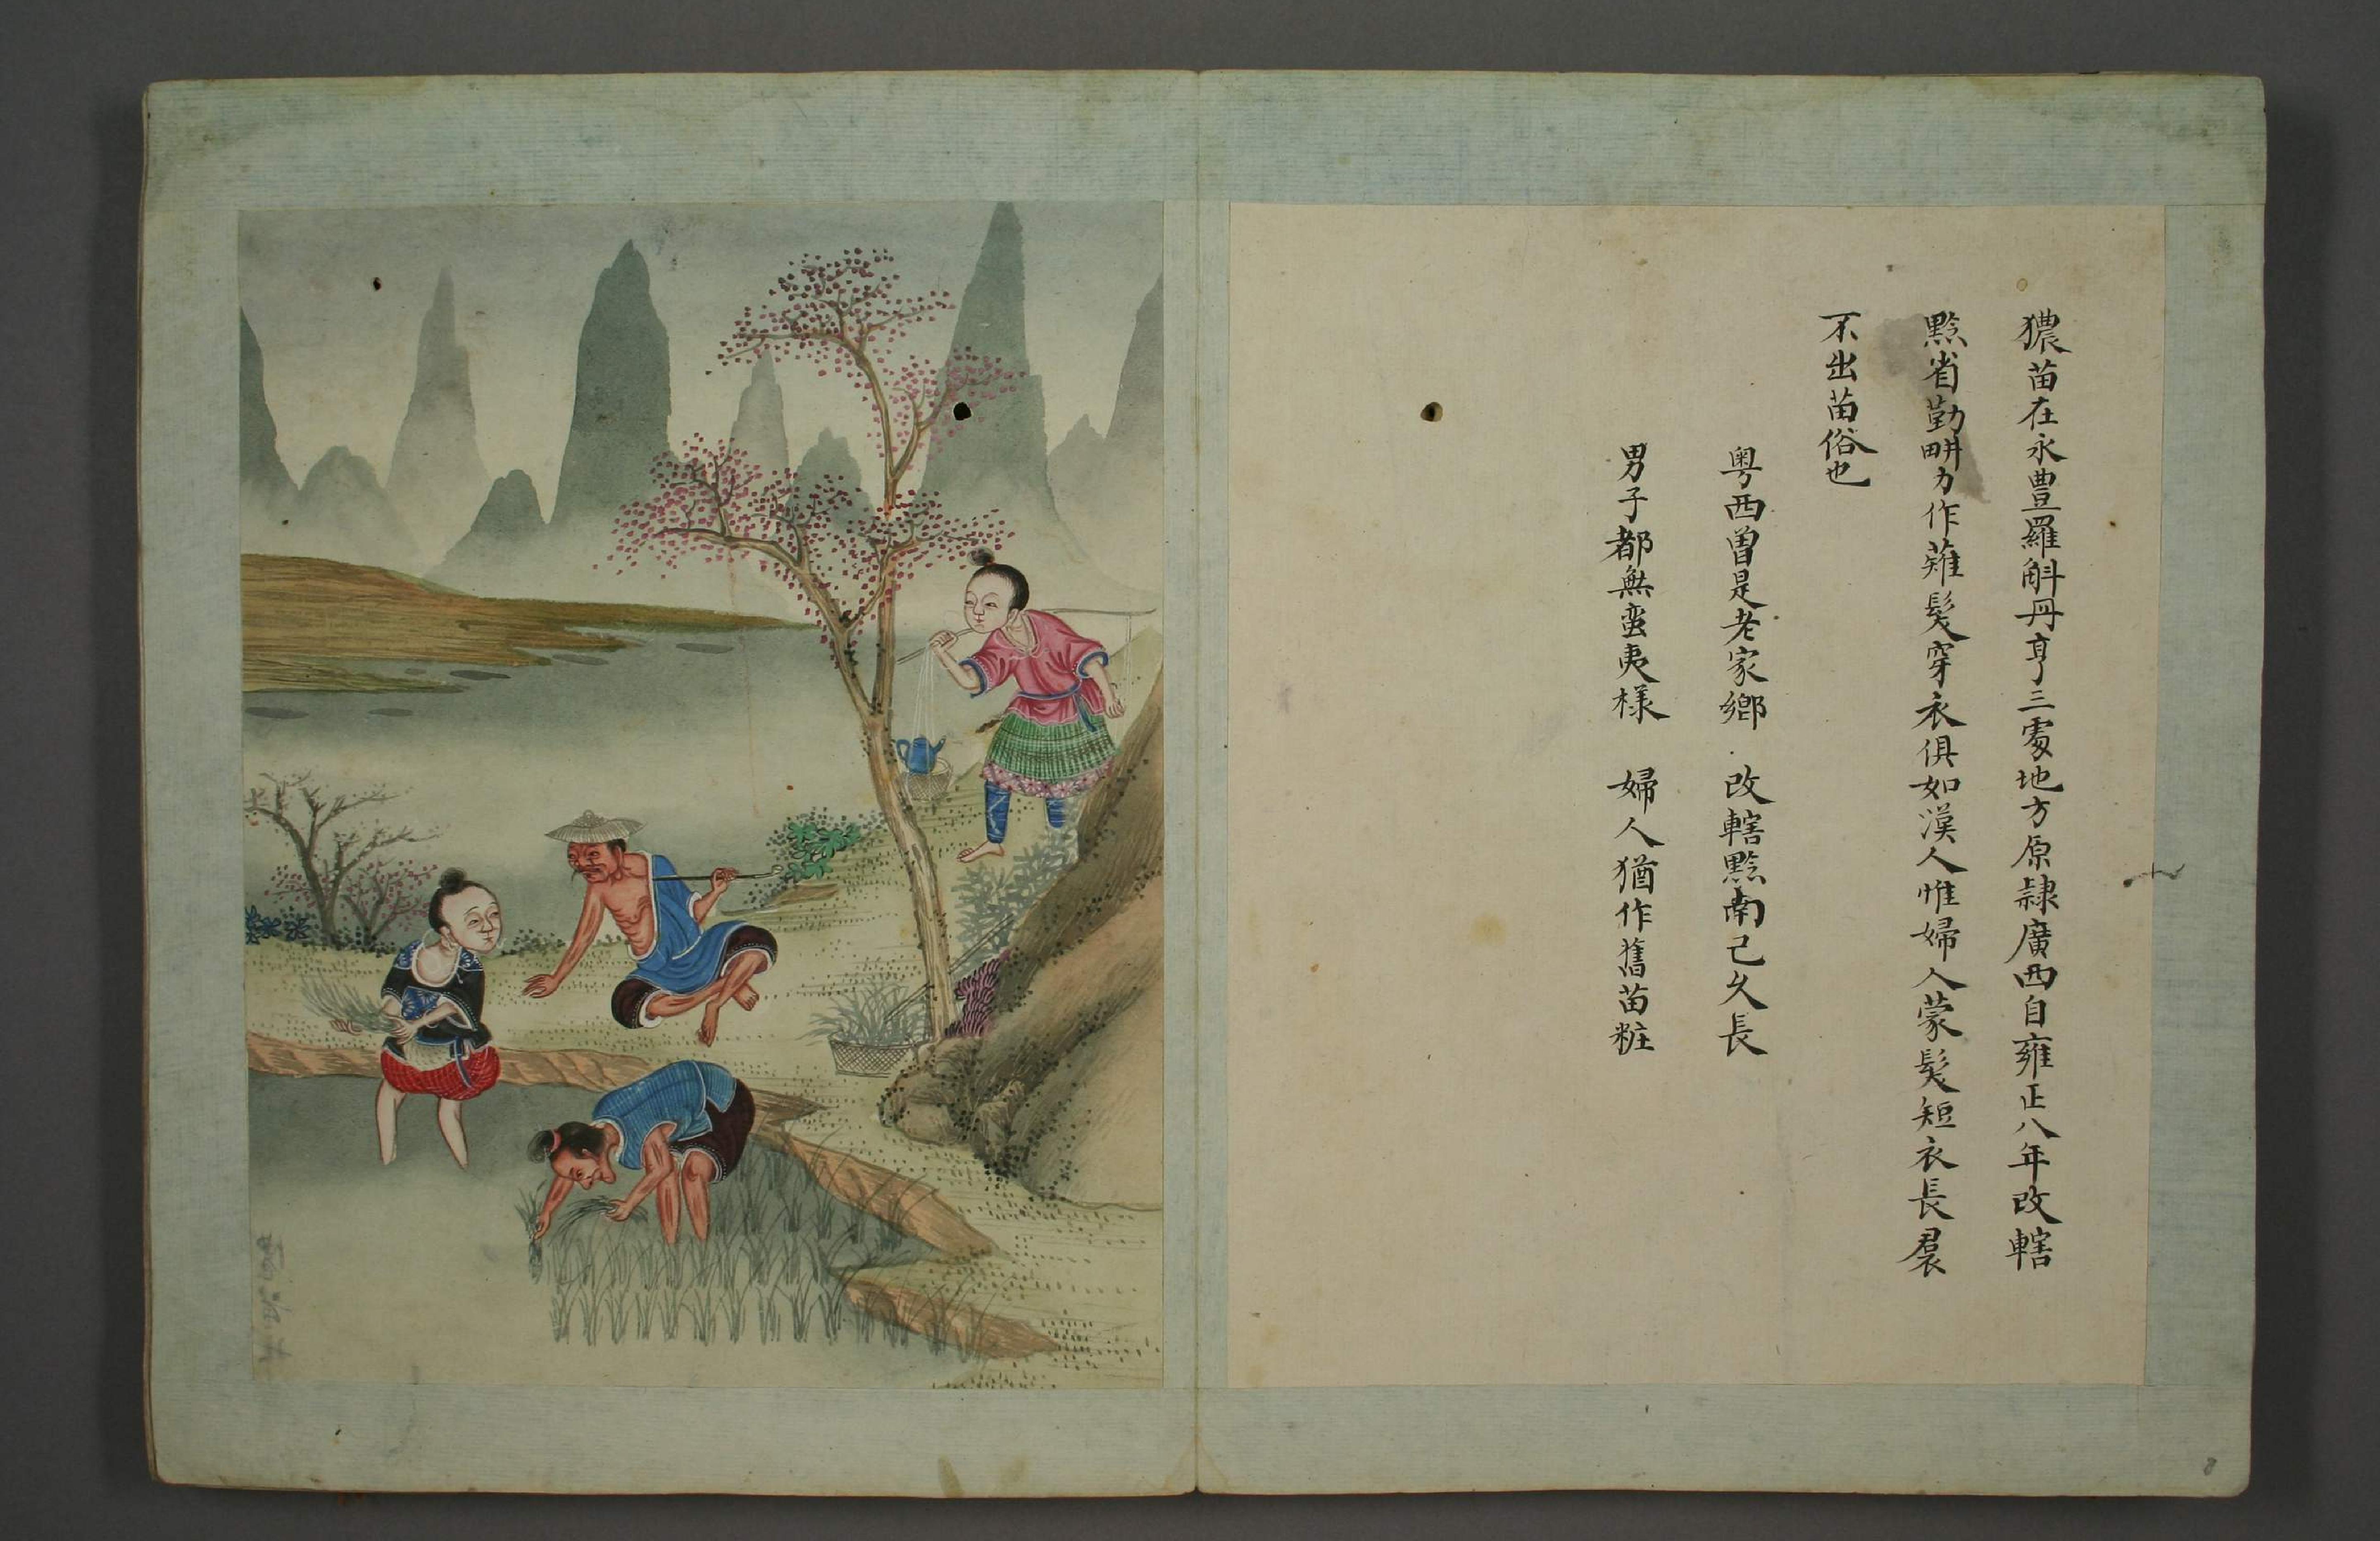 獽苗在永豊羅斛丹亨三䖏地方原隷廣西自雍正八年改轄
黔省勤畊力作薙髮穿衣俱如漢人惟婦人蒙髮短衣長裠
不出苗俗也
粤西曾是老家鄉 改轄黔南已久長
男子都無蛮夷様 婦人猶作舊苗粧
8